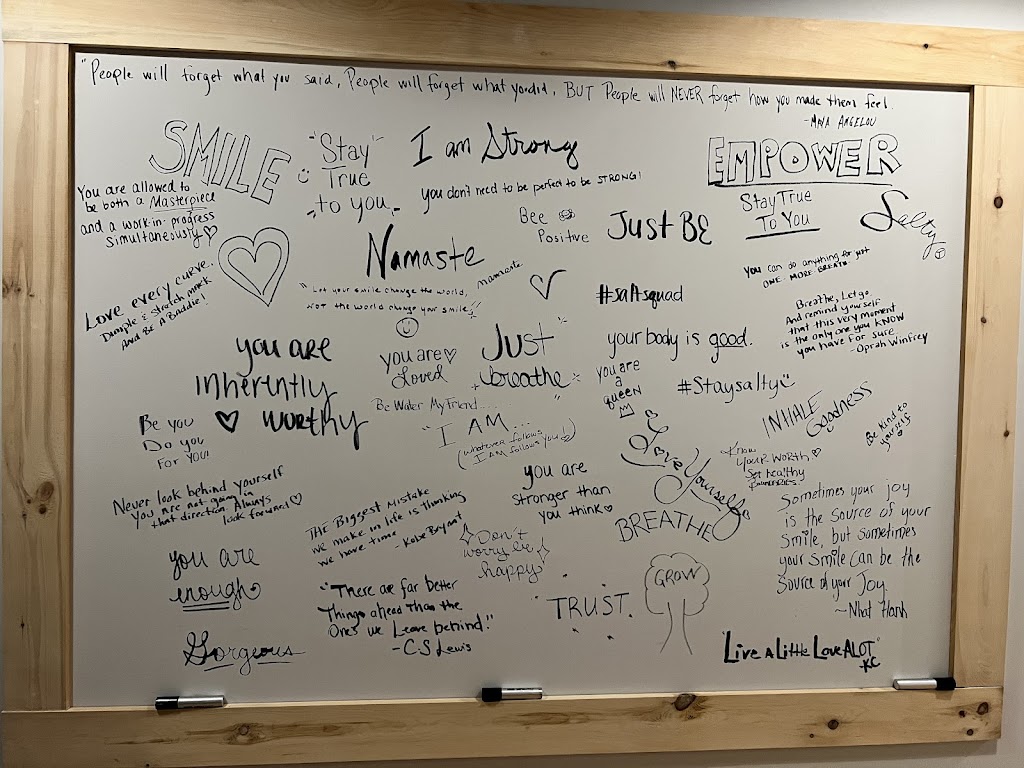 "People will forget what you said, People will forget what you did, BUT People will NEVER forget how you made them feel.
-MAYA ANGELOU
SMILE
"Stay"
True
to you
I am Strong
you don't need to be perfect to be STRONG!
EMPOWER
Stay True
To You
Salty
You are allowed to
be both a Masterpiece
and a work-in-progress
simultaneously
Bee
Positive
Just BE
Namaste
namaste
You can do anything for just
ONE MORE BREATH.
Love every curve.
Dimple & Stretch mark
And Be A Baddie!
"Let your smile change the world,
NOT the world change your smile"
#saltsquad
Breathe, Let go
And remind yourself
that this very moment
is the only one you KNOW
you have for sure.
-Oprah Winfrey
you are
inherently
worthy
you are
Loved
Just
breathe
your body is good.
you are
a
queen
#Staysalty
Be Water My Friend....
"I AM...
(whatever follows
I AM follows you!)
INHALE
Goodness
Be kind to
yourself
Be you
Do you
For YOU!
Love Yourself
Know
your worth
Set healthy
Boundaries!
Never look behind yourself
You are not going in
that direction. Always
look forward!
THE Biggest Mistake
we make in life is thinking
we have time
-Kobe Bryant
you are
stronger than
you think
BREATHE
Sometimes your joy
is the source of your
Smile, but sometimes
your smile can be the
Source of your Joy
~Nhat Hanh
Don't
worry be
happy
you are
enough
"There are far better
Things ahead Than the
Ones we Leave behind."
-C.S Lewis
TRUST.
GROW
Gorgeous
"Live A Little Love ALOT"
-KC